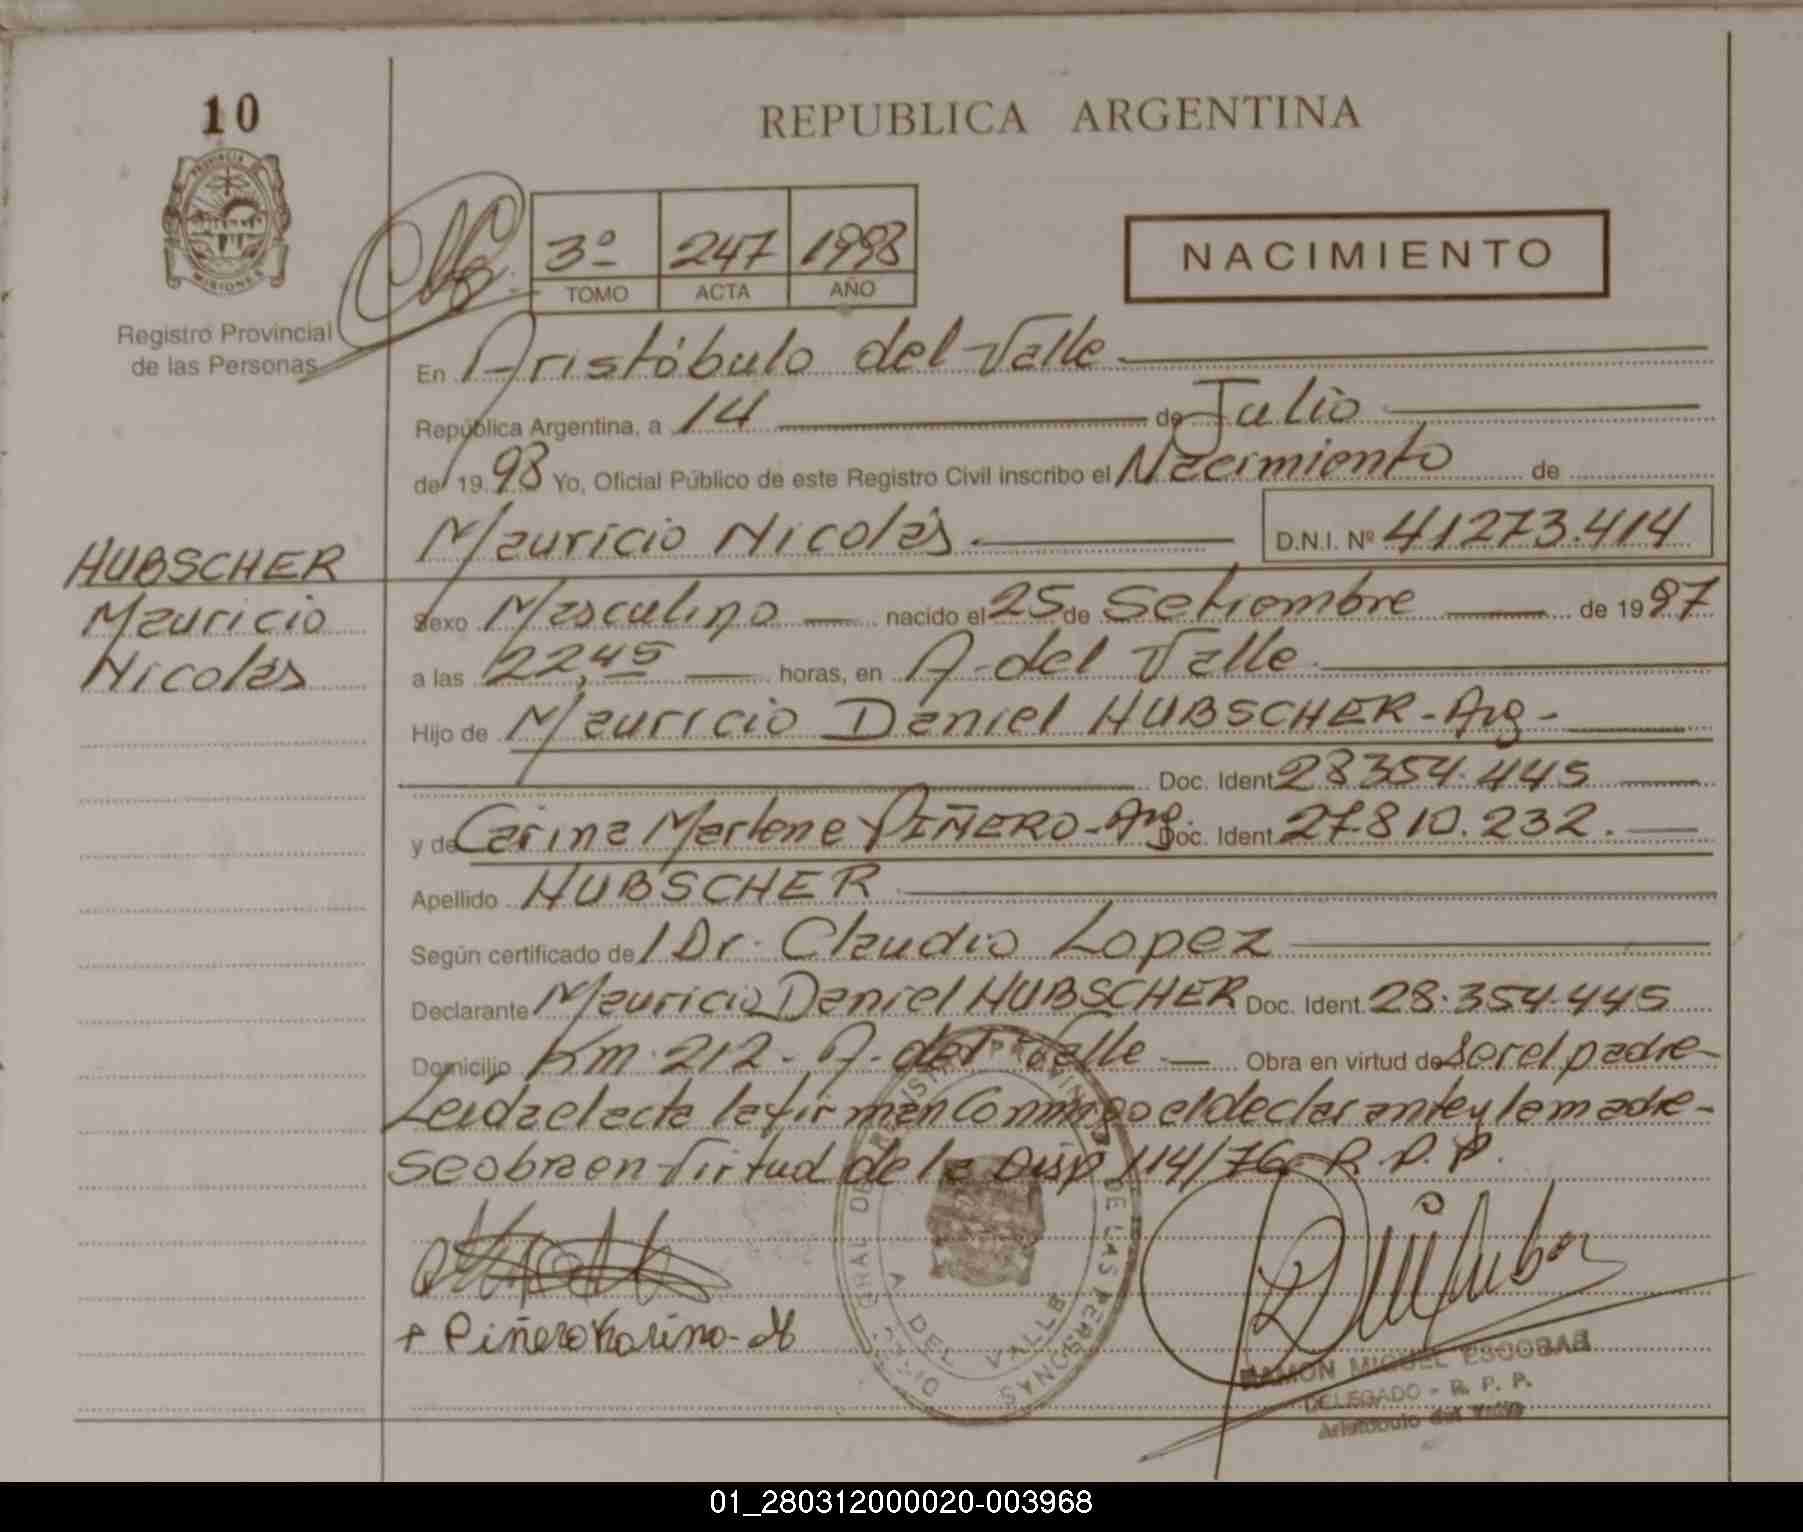 10
REPUBLICA ARGENTINA
PROVINCIA DE
MISIONES
Registro Provincial
de las Personas
3º 247 1998
TOMO ACTA AÑO
NACIMIENTO
En Aristóbulo del Valle
República Argentina, a 14 de Julio
de 19 98 Yo, Oficial Público de este Registro Civil inscribo el Nacimiento de
Mauricio Nicolás. D.N.I. Nº 41273.414
HUBSCHER
Mauricio
Nicolás
Sexo Masculino nacido el 25 de Setiembre de 19 97
a las 22,45 horas, en A. del Valle
Hijo de Mauricio Daniel HUBSCHER - Arg -
Doc. Ident. 28354.445
y de Carina Marlene PIÑERO - Arg. Doc. Ident. 27.810.232.
Apellido HUBSCHER
Según certificado de l Dr. Claudio Lopez
Declarante Mauricio Daniel HUBSCHER Doc. Ident. 28.354.445
Domicilio Km. 212 - A. del Valle Obra en virtud de Ser el padre -
Leida el acta la firman Conmigo el declarante y la madre -
se obra en Virtud de la Disp 114/76 R.P.P.
+ Piñero Karina - M
GRAL DE REGISTRO PROVINCIAL DE LAS PERSONAS
A DEL VALLE
RAMON MIGUEL ESCOBAR
DELEGADO - R. P. P.
Aristobulo del Valle
01_280312000020-003968